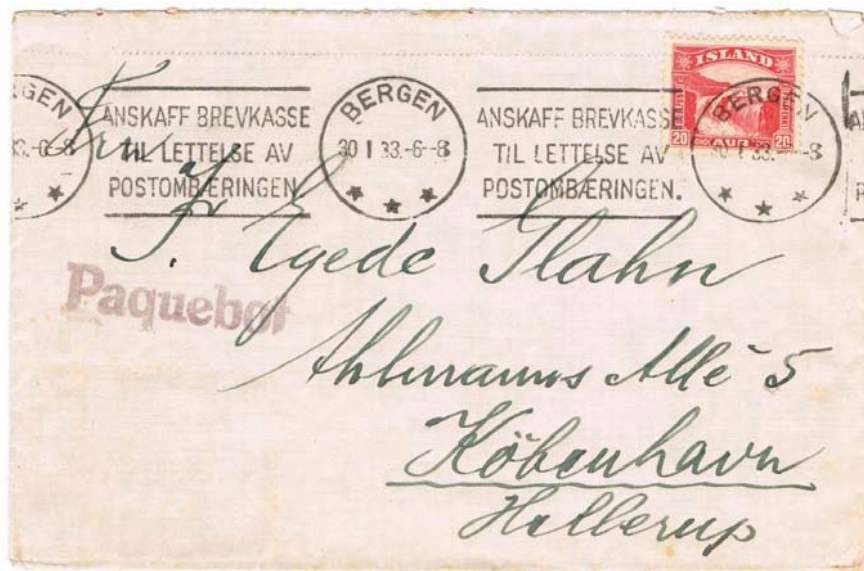 ISLAND
20 AUR 20
BERGEN
ANSKAFF BREVKASSE
TIL LETTELSE AV
POSTOMBÆRINGEN.
BERGEN
30 I 33.-6-8
ANSKAFF BREVKASSE
TIL LETTELSE AV
POSTOMBÆRINGEN.
BERGEN
30 I 33. -8
Fru
Egede Glahn
Paquebot
Ahlmanns Allé 5
København
Hellerup